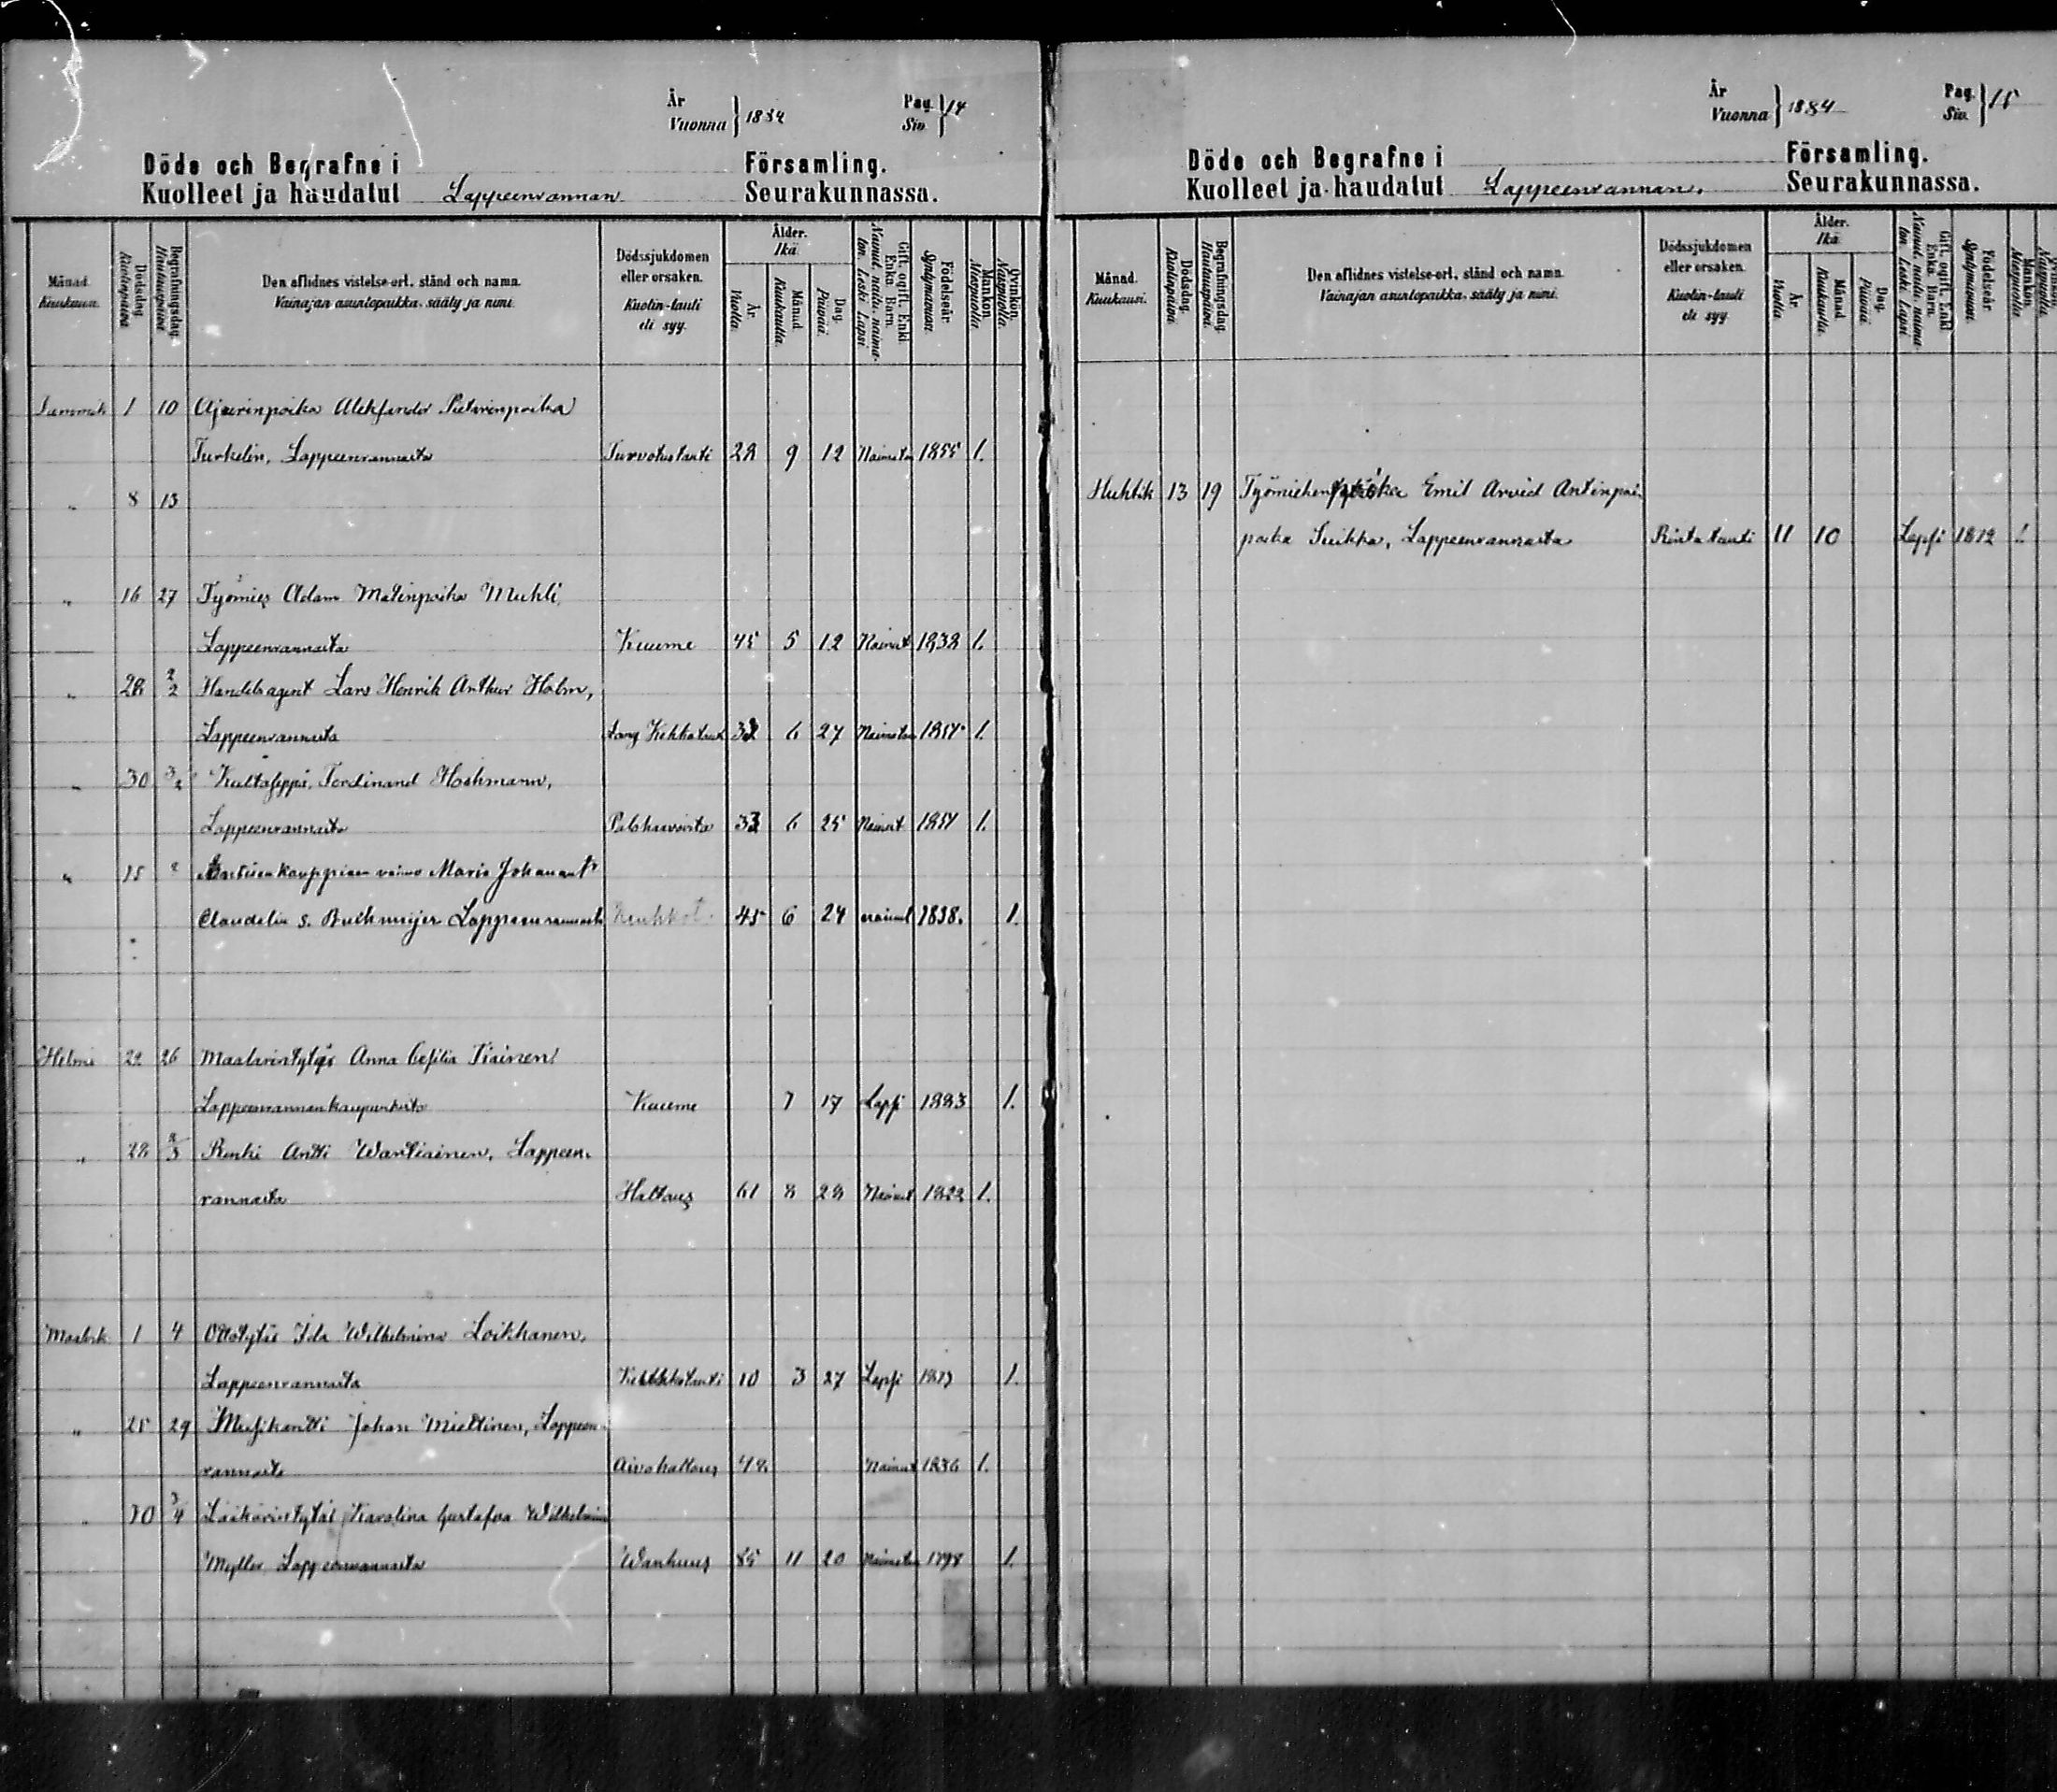 År
Vuonna } 1884
Pag.
Siv. } 14
Döde och Begrafne i Församling.
Kuolleet ja haudatut Lappeenrannan Seurakunnassa.
Månad. Kuukausi.
Dödsdag. Kuolinpäivä.
Begrafningsdag. Hautauspäivä.
Den aflidnes vistelse-ort, stånd och namn.
Vainajan asuntopaikka, sääty ja nimi.
Dödssjukdomen eller orsaken.
Kuolin-tauti eli syy.
Ålder. Ikä.
År. Vuotta.
Månad. Kuukautta.
Dag. Päivää.
Gift, ogift, Enkl. Enka. Barn.
Nainut, naitu, naimaton, Leski, Lapsi
Födelseår. Syntymävuosi.
Mankön. Miespuolia.
Qvinkön. Naispuolia.
Tammik 1 10 Ajurinpoika Aleksander Pietarinpoika
Turkelin, Lappeenrannasta Turvotustauti 28 9 12 Naimaton 1855 1.
" 8 13
" 16 27 Työmies Adam Matinpoika Muhli
Lappeenrannasta Kuume 45 5 12 Nainut 1838 1.
" 28 2/2 Handelsagent Lars Henrik Arthur Holm,
Lappeenrannasta Keuhkotauti 32 6 27 Naimaton 1851 1.
" 30 3/2 Kultaseppä Ferdinand Hohmann,
Lappeenrannasta 32 6 25 Nainut 1851 1.
" 15 vaimo Maria Johanant
Claudelin s. Buchmeijer Lappeenrannasta Keuhkot. 45 6 24 nainut 1838. 1.
Helmi 22 26 Maalarintytär Anna Cesilia Tiainen
Lappeenrannan kaupunkista Kuume 7 17 Lapsi 1883 1.
" 28 2/3 Renki Antti Wantiainen, Lappeen-
rannasta Halvaus 61 8 28 Nainut 1822 1.
Maalisk 1 4 Ottotytär Ida Wilhelmina Loikkanen,
Lappeenrannasta Keuhkotauti 10 3 27 Lapsi 1873 1.
" 25 29 Musikantti Johan Miettinen, Lappeen-
rannasta Aivohalvaus 48 Nainut 1836 1.
" 30 3/4 Lääkärintytär Karolina Gustafva Wilhelmina
Myller Lappeenrannasta Wanhuus 85 11 20 Naimaton 1798 1.
År
Vuonna } 1884
Pag.
Siv. } 15
Döde och Begrafne i Församling.
Kuolleet ja haudatut Lappeenrannan. Seurakunnassa.
Månad. Kuukausi.
Dödsdag. Kuolinpäivä.
Begrafningsdag. Hautauspäivä.
Den aflidnes vistelse-ort, stånd och namn.
Vainajan asuntopaikka, sääty ja nimi.
Dödssjukdomen eller orsaken.
Kuolin-tauti eli syy.
Ålder. Ikä.
År. Vuotta.
Månad. Kuukautta.
Dag. Päivää.
Gift, ogift, Enkl. Enka. Barn.
Nainut, naitu, naimaton, Leski, Lapsi
Födelseår. Syntymävuosi.
Mankön. Miespuolia.
Qvinkön. Naispuolia.
Huhtik 13 19 Työmiehen poika Emil Arvid Antinpoi-
poika Suikka, Lappeenrannasta Rintatauti 11 10 Lapsi 1872 1.